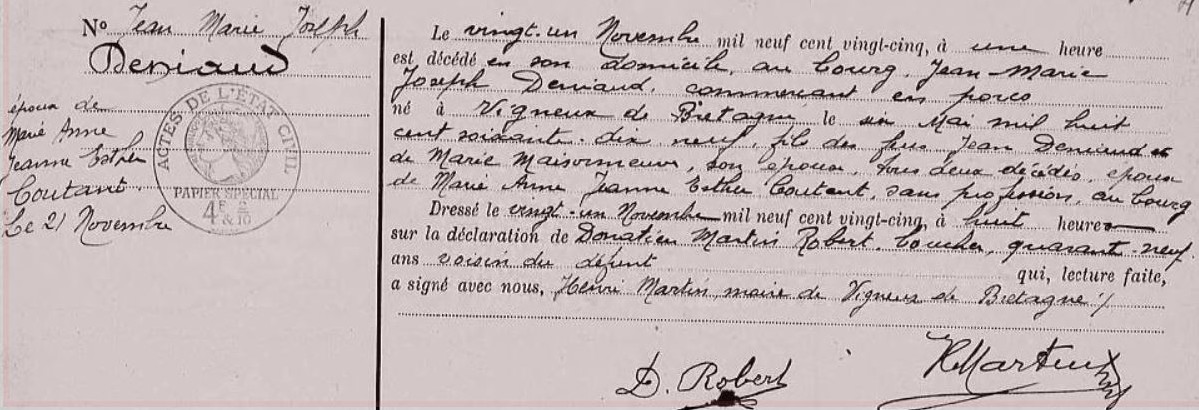 N° Jean Marie Joseph
Deniaud
époux de
Marie Anne
Jeanne Esther
Coutant
Le 21 Novembre
ACTES DE L'ÉTAT CIVIL
PAPIER SPÉCIAL
4F 2/10
& 10
Le vingt-un Novembre mil neuf cent vingt-cinq, à une heure
est décédé en son domicile, au bourg, Jean-Marie
Joseph Deniaud, commercant en porcs
né à Vigneux de Bretagne le six Mai mil huit
cent soixante-dix neuf, fils des feus Jean Deniaud et
de Marie Maisonneuve, son épouse, tous deux décédés, époux
de Marie Anne Jeanne Esther Coutant, sans profession, au bourg
Dressé le vingt-un Novembre mil neuf cent vingt-cinq, à huit heures
sur la déclaration de Donatien Martin Robert, boucher, quarant-neuf
ans voisin du défunt qui, lecture faite,
a signé avec nous, Henri Martin maire de Vigneux de Bretagne ./
D. Robert
HMartin